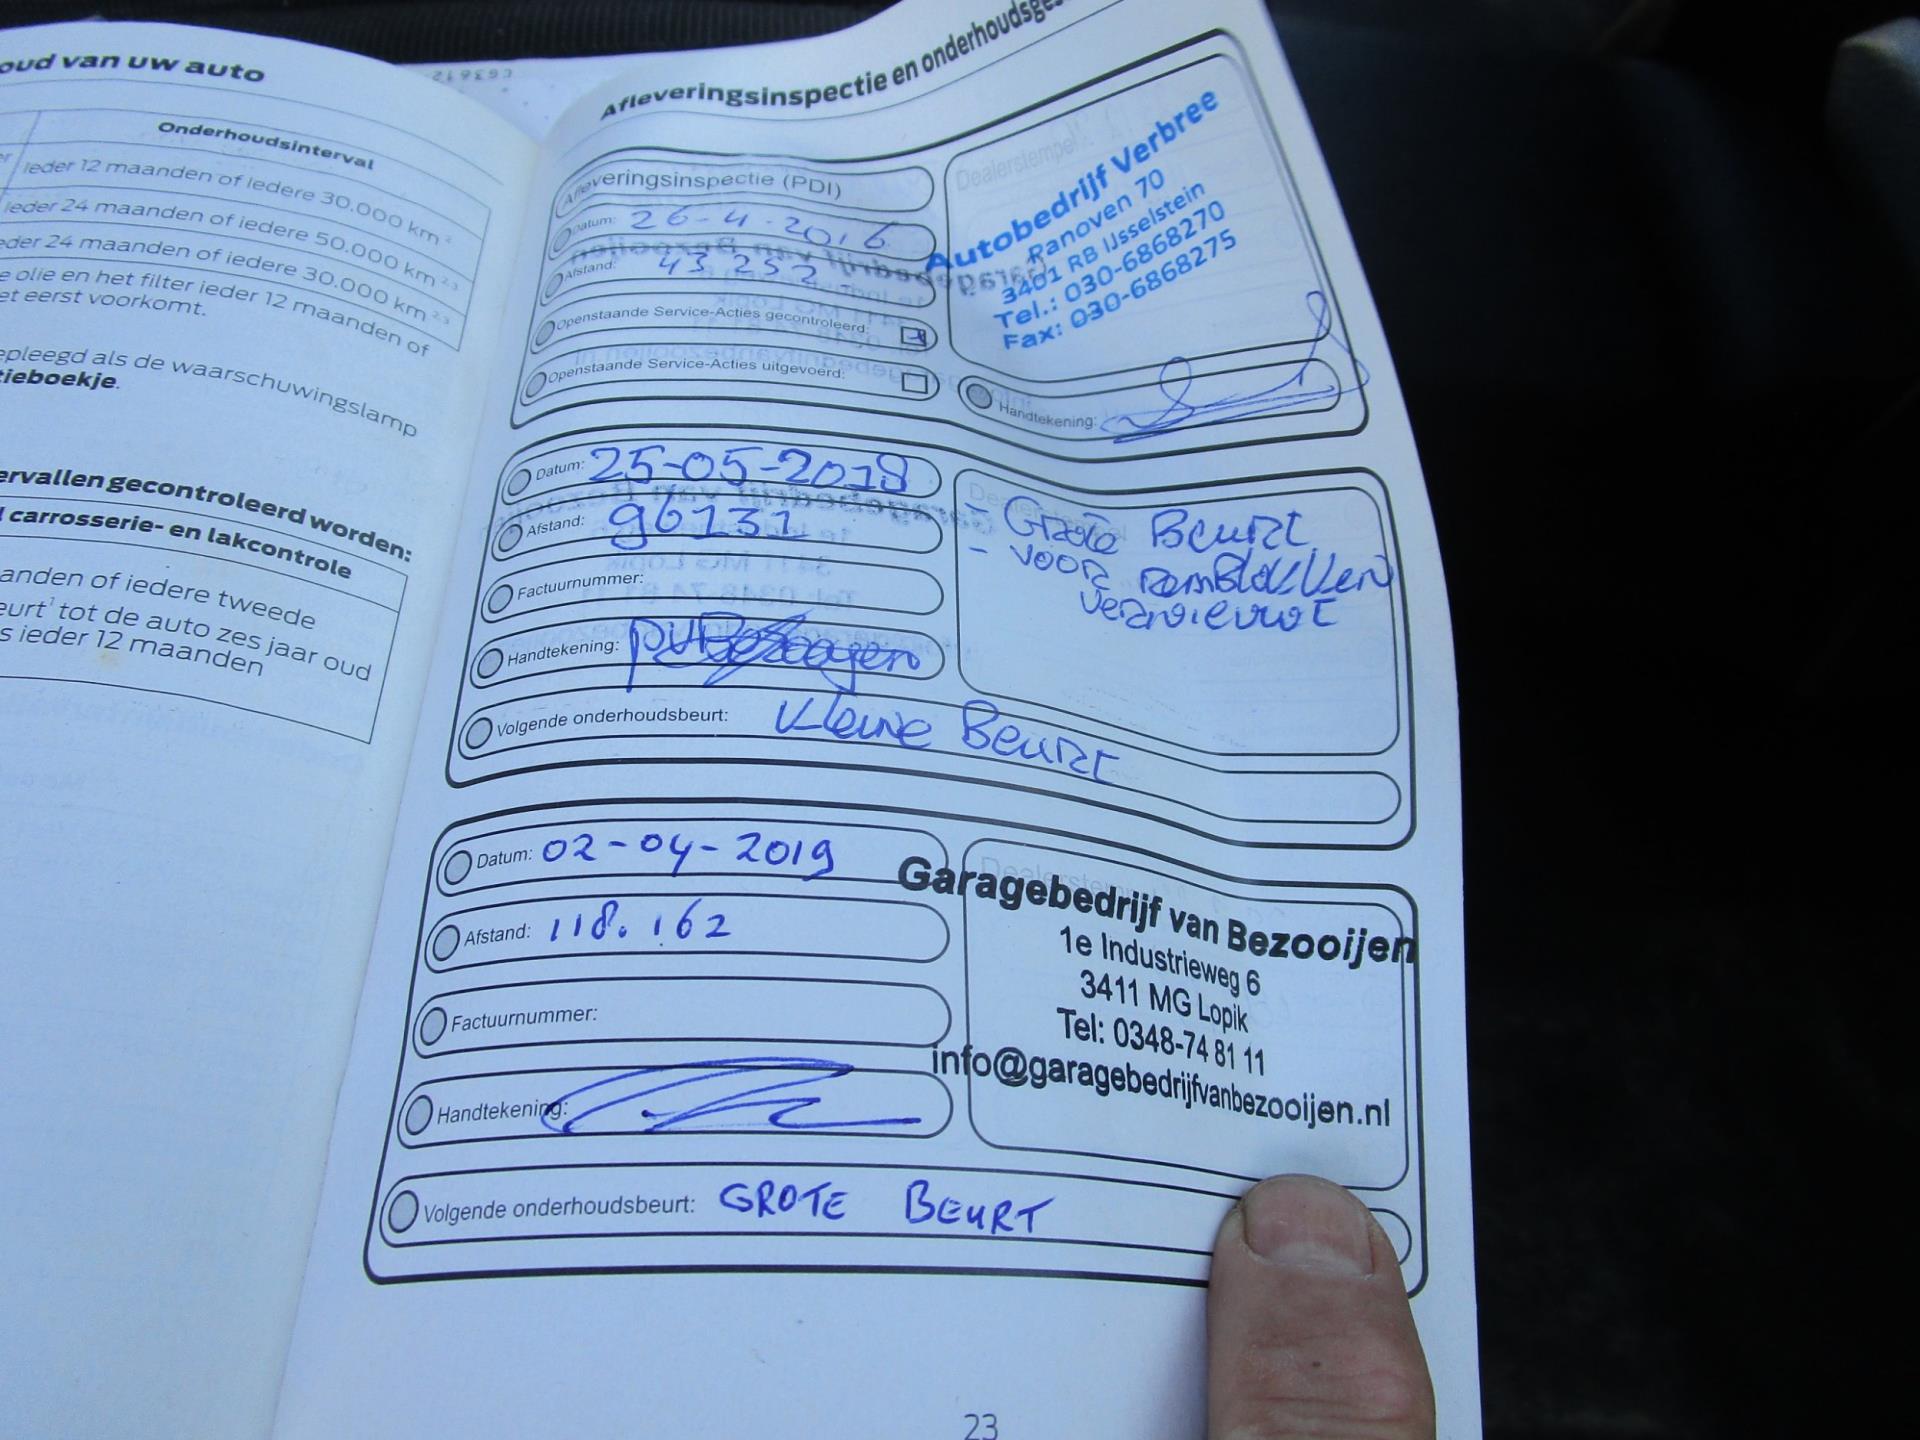 oud van uw auto
Onderhoudsinterval
Ieder 12 maanden of iedere 30.000 km ²
Ieder 24 maanden of iedere 50.000 km ²·³
eder 24 maanden of iedere 30.000 km ²·³
e olie en het filter ieder 12 maanden of
et eerst voorkomt.
epleegd als de waarschuwingslamp
tieboekje.
ervallen gecontroleerd worden:
l carrosserie- en lakcontrole
anden of iedere tweede
eurt¹ tot de auto zes jaar oud
s ieder 12 maanden
Afleveringsinspectie en onderhoudsges
Afleveringsinspectie (PDI)
Datum: 26-4-2016
Afstand: 43 252
Openstaande Service-Acties gecontroleerd:
Openstaande Service-Acties uitgevoerd:
Dealerstempel
Autobedrijf Verbree
Ranoven 70
3401 RB IJsselstein
Tel.: 030-6868270
Fax: 030-6868275
Handtekening:
Datum: 25-05-2018
Afstand: 96131
Factuurnummer:
Handtekening:
Volgende onderhoudsbeurt: Kleine Beurt
- Grote Beurt
- voor remblokken
vernieuwt
Datum: 02-04-2019
Afstand: 118.162
Factuurnummer:
Handtekening:
Volgende onderhoudsbeurt: GROTE BEURT
Dealerstempel
Garagebedrijf van Bezooijen
1e Industrieweg 6
3411 MG Lopik
Tel: 0348-74 81 11
info@garagebedrijfvanbezooijen.nl
23